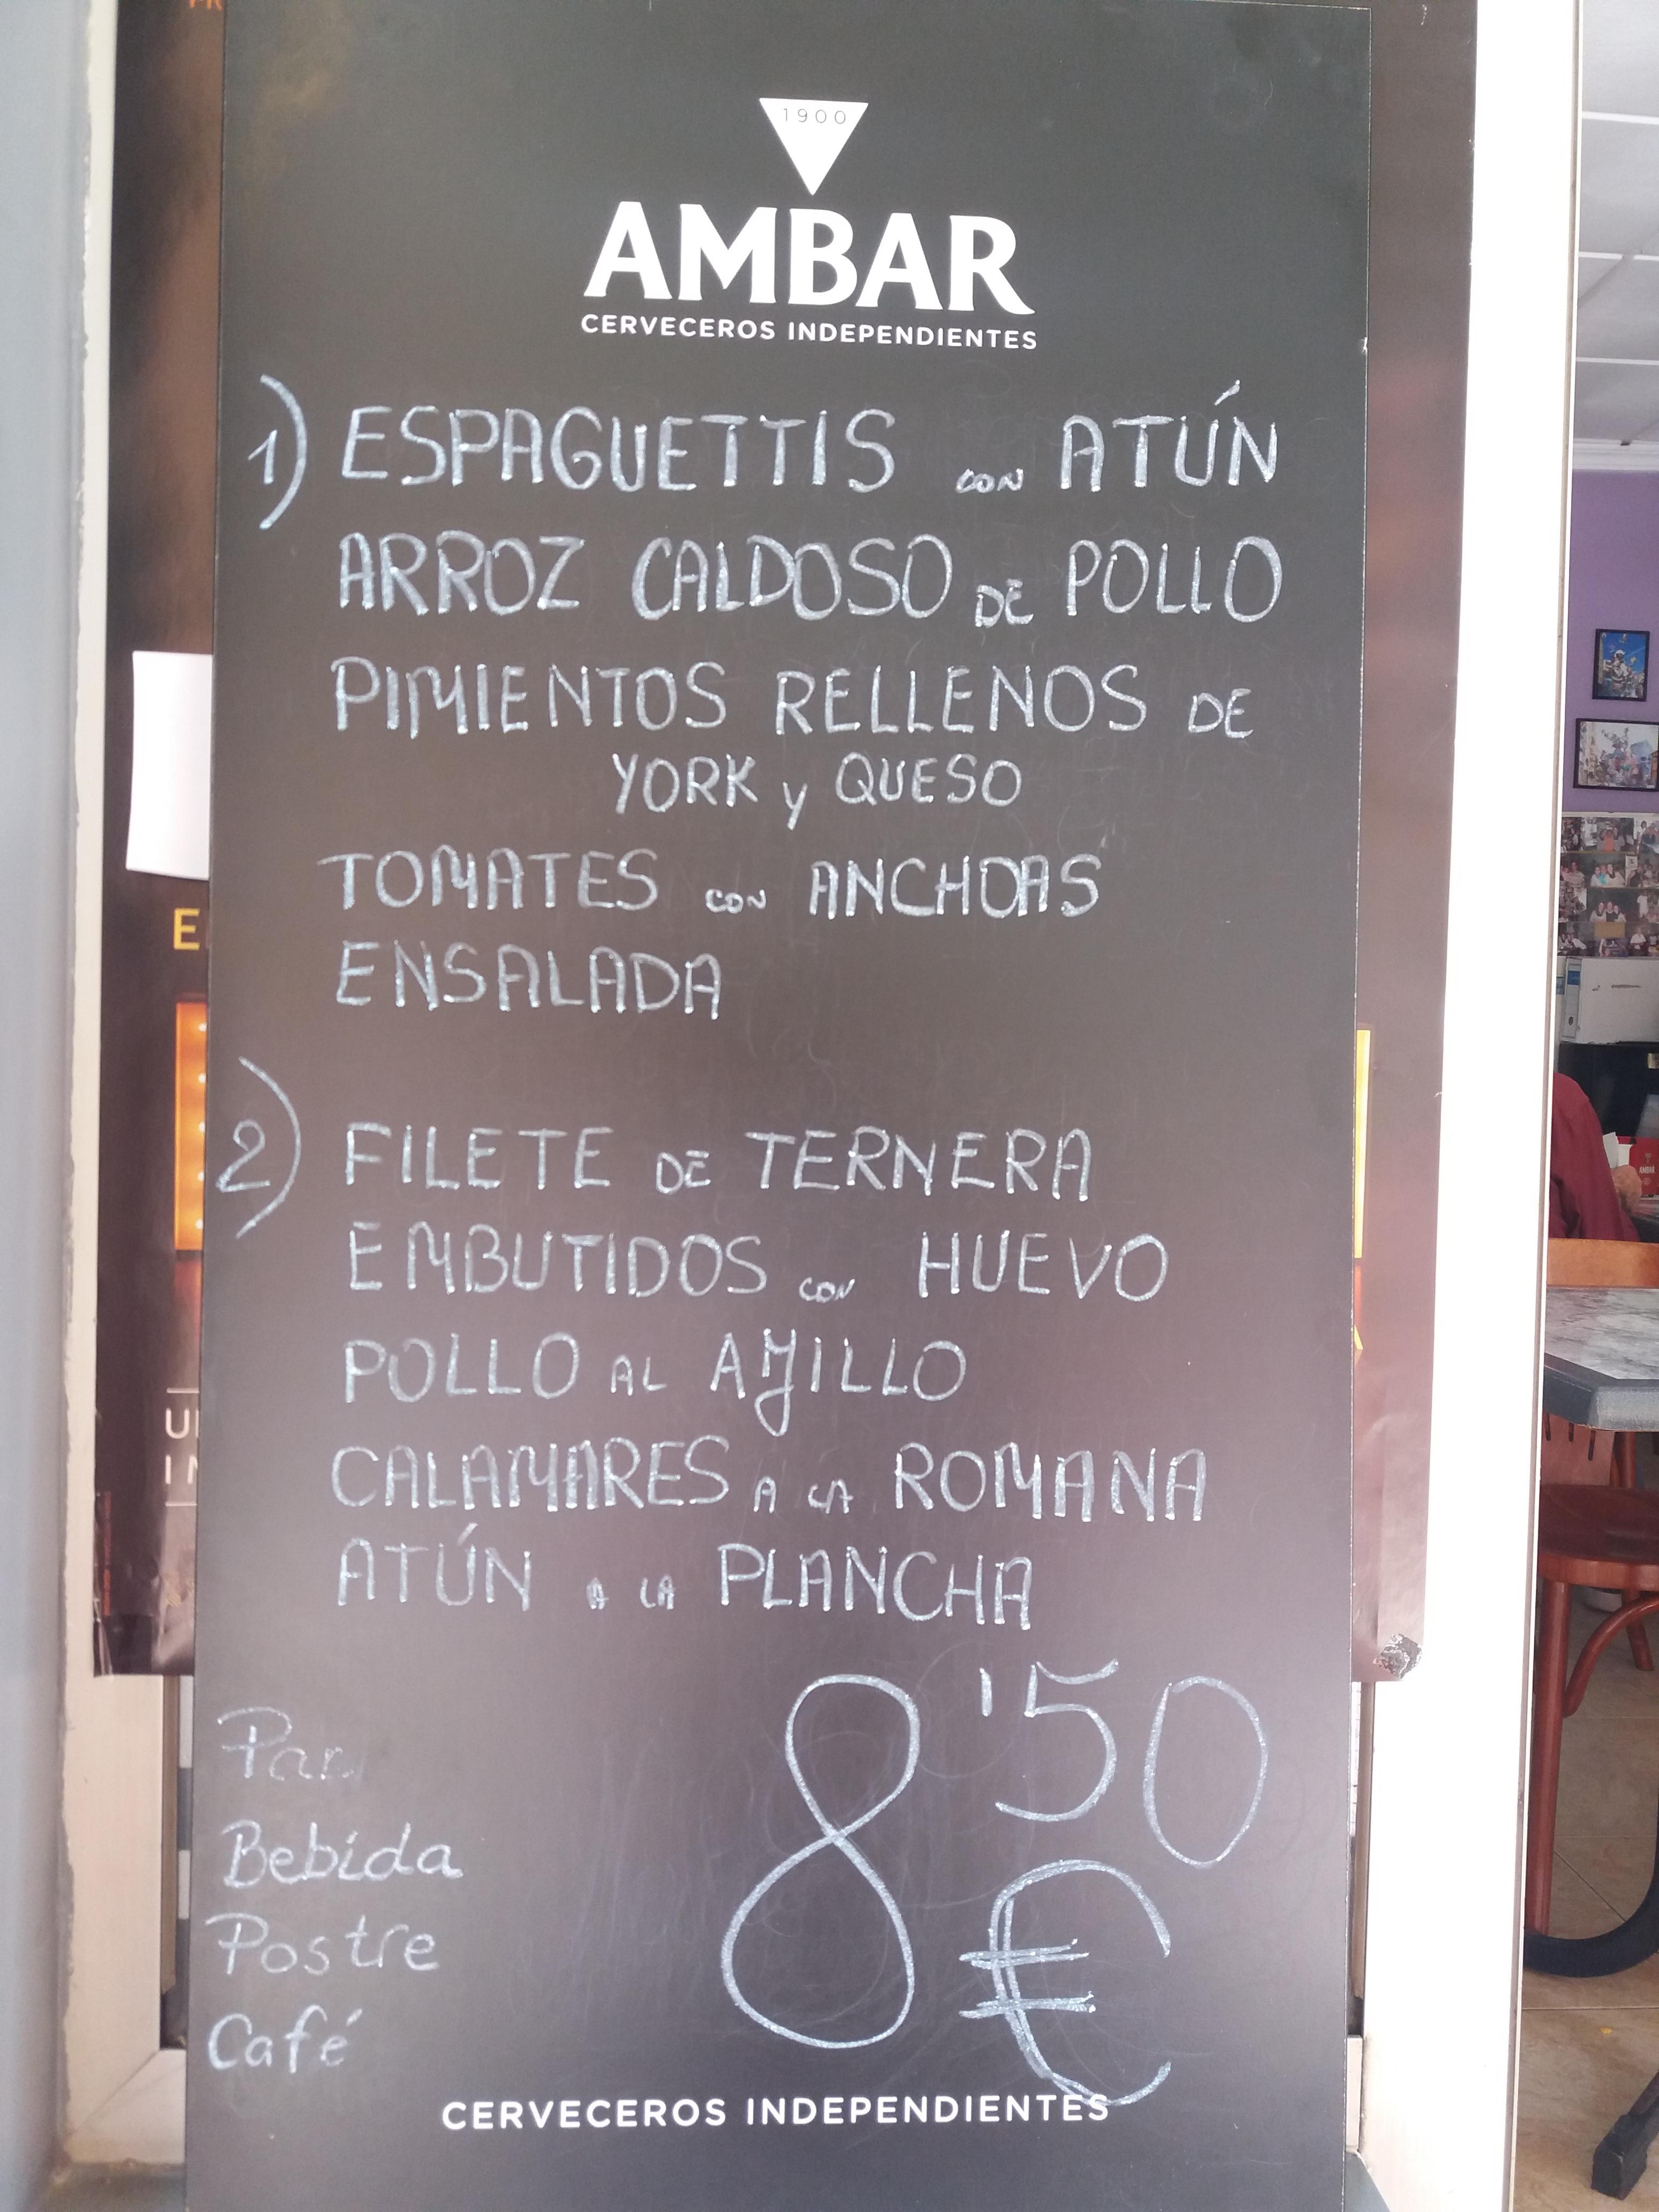 1900
AMBAR
CERVECEROS INDEPENDIENTES
1) ESPAGUETTIS CON ATÚN
ARROZ CALDOSO DE POLLO
PIMIENTOS RELLENOS DE
YORK y QUESO
TOMATES CON ANCHOAS
ENSALADA
2) FILETE DE TERNERA
EMBUTIDOS CON HUEVO
POLLO AL AJILLO
CALAMARES A LA ROMANA
ATÚN A LA PLANCHA
8'50
€
Pan
Bebida
Postre
Café
CERVECEROS INDEPENDIENTES